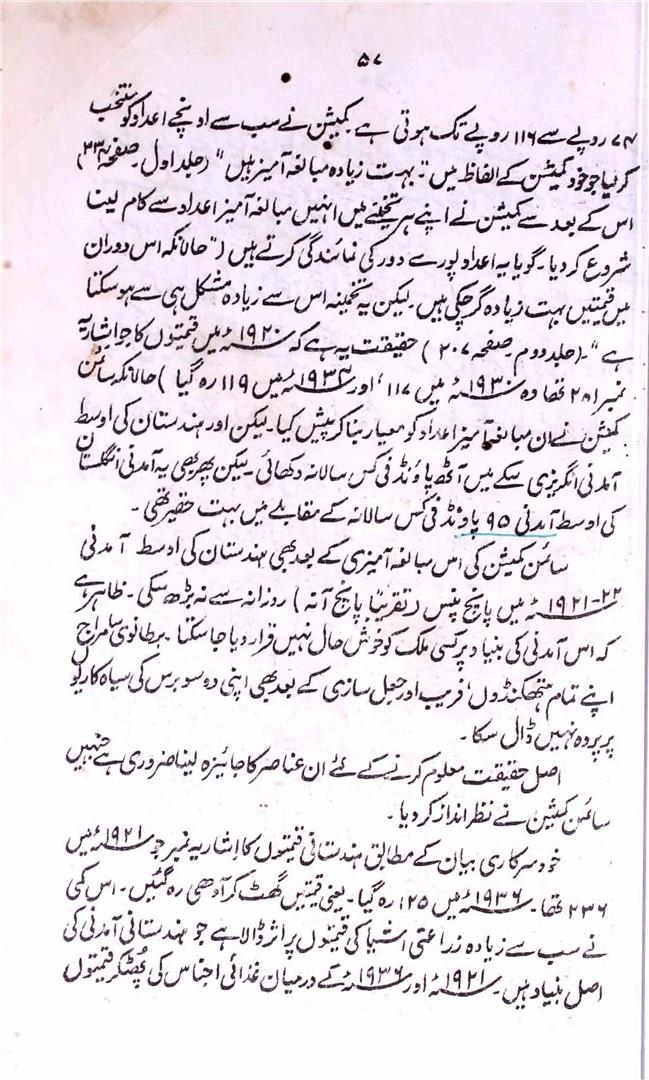 ۵۷
۷۴ روپے سے ۱۱۶ روپے تک ہوتی ہے۔ کمیشن نے سب سے اونچے اعداد کو منتخب
کر لیا جو خود کمیشن کے الفاظ میں "بہت زیادہ مبالغہ آمیز ہیں" (جلد اول۔ صفحہ ۳۳۴)
اس کے بعد سے کمیشن نے اپنے ہر تخمینے میں انہیں مبالغہ آمیز اعداد سے کام لینا
شروع کر دیا۔ گویا یہ اعداد پورے دور کی نمائندگی کرتے ہیں ("حالانکہ اس دوران
میں قیمتیں بہت زیادہ گر چکی ہیں۔ لیکن یہ تخمینہ اس سے زیادہ مشکل ہی سے ہو سکتا
ہے"۔ (جلد دوم۔ صفحہ ۲۰۷) حقیقت یہ ہے کہ ۱۹۲۰ء میں قیمتوں کا جو اشاریہ
نمبر ۲۸۱ تھا وہ ۱۹۳۰ء میں ۱۱۷، اور ۱۹۳۴ء میں ۱۱۹ رہ گیا) حالانکہ سائمن
کمیشن نے ان مبالغہ آمیز اعداد کو معیار بنا کر پیش کیا۔ لیکن اور ہندستان کی اوسط
آمدنی انگریزی سکے میں آٹھ پاؤنڈ فی کس سالانہ دکھائی۔ لیکن پھر بھی یہ آمدنی انگلستان
کی اوسط آمدنی ۹۵ پاؤنڈ فی کس سالانہ کے مقابلے میں بہت حقیر تھی۔
سائمن کمیشن کی اس مبالغہ آمیزی کے بعد بھی ہندستان کی اوسط آمدنی
۲۲-۱۹۲۱ء میں پانچ پنس (تقریباً پانچ آنہ) روزانہ سے نہ بڑھ سکی۔ ظاہر ہے
کہ اس آمدنی کی بنیاد پر کسی ملک کو خوش حال نہیں قرار دیا جا سکتا۔ برطانوی سامراج
اپنے تمام ہتھکنڈوں، فریب اور جعل سازی کے بعد بھی اپنی دو سو برس کی سیاہ کاریوں
پر پردہ نہیں ڈال سکا۔
اصل حقیقت معلوم کرنے کے لئے ان عناصر کا جائزہ لینا ضروری ہے جنہیں
سائمن کمیشن نے نظر انداز کر دیا۔
خود سرکاری بیان کے مطابق ہندستانی قیمتوں کا اشاریہ نمبر جو ۱۹۲۱ء میں
۲۳۶ تھا۔ ۱۹۳۶ء میں ۱۲۵ رہ گیا۔ یعنی قیمتیں گھٹ کر آدھی رہ گئیں۔ اس کمی
نے سب سے زیادہ زراعتی اشیا کی قیمتوں پر اثر ڈالا ہے جو ہندستانی آمدنی کی
اصل بنیاد ہیں۔ ۱۹۲۱ء اور ۱۹۳۶ء کے درمیان غذائی اجناس کی پھٹکر قیمتوں